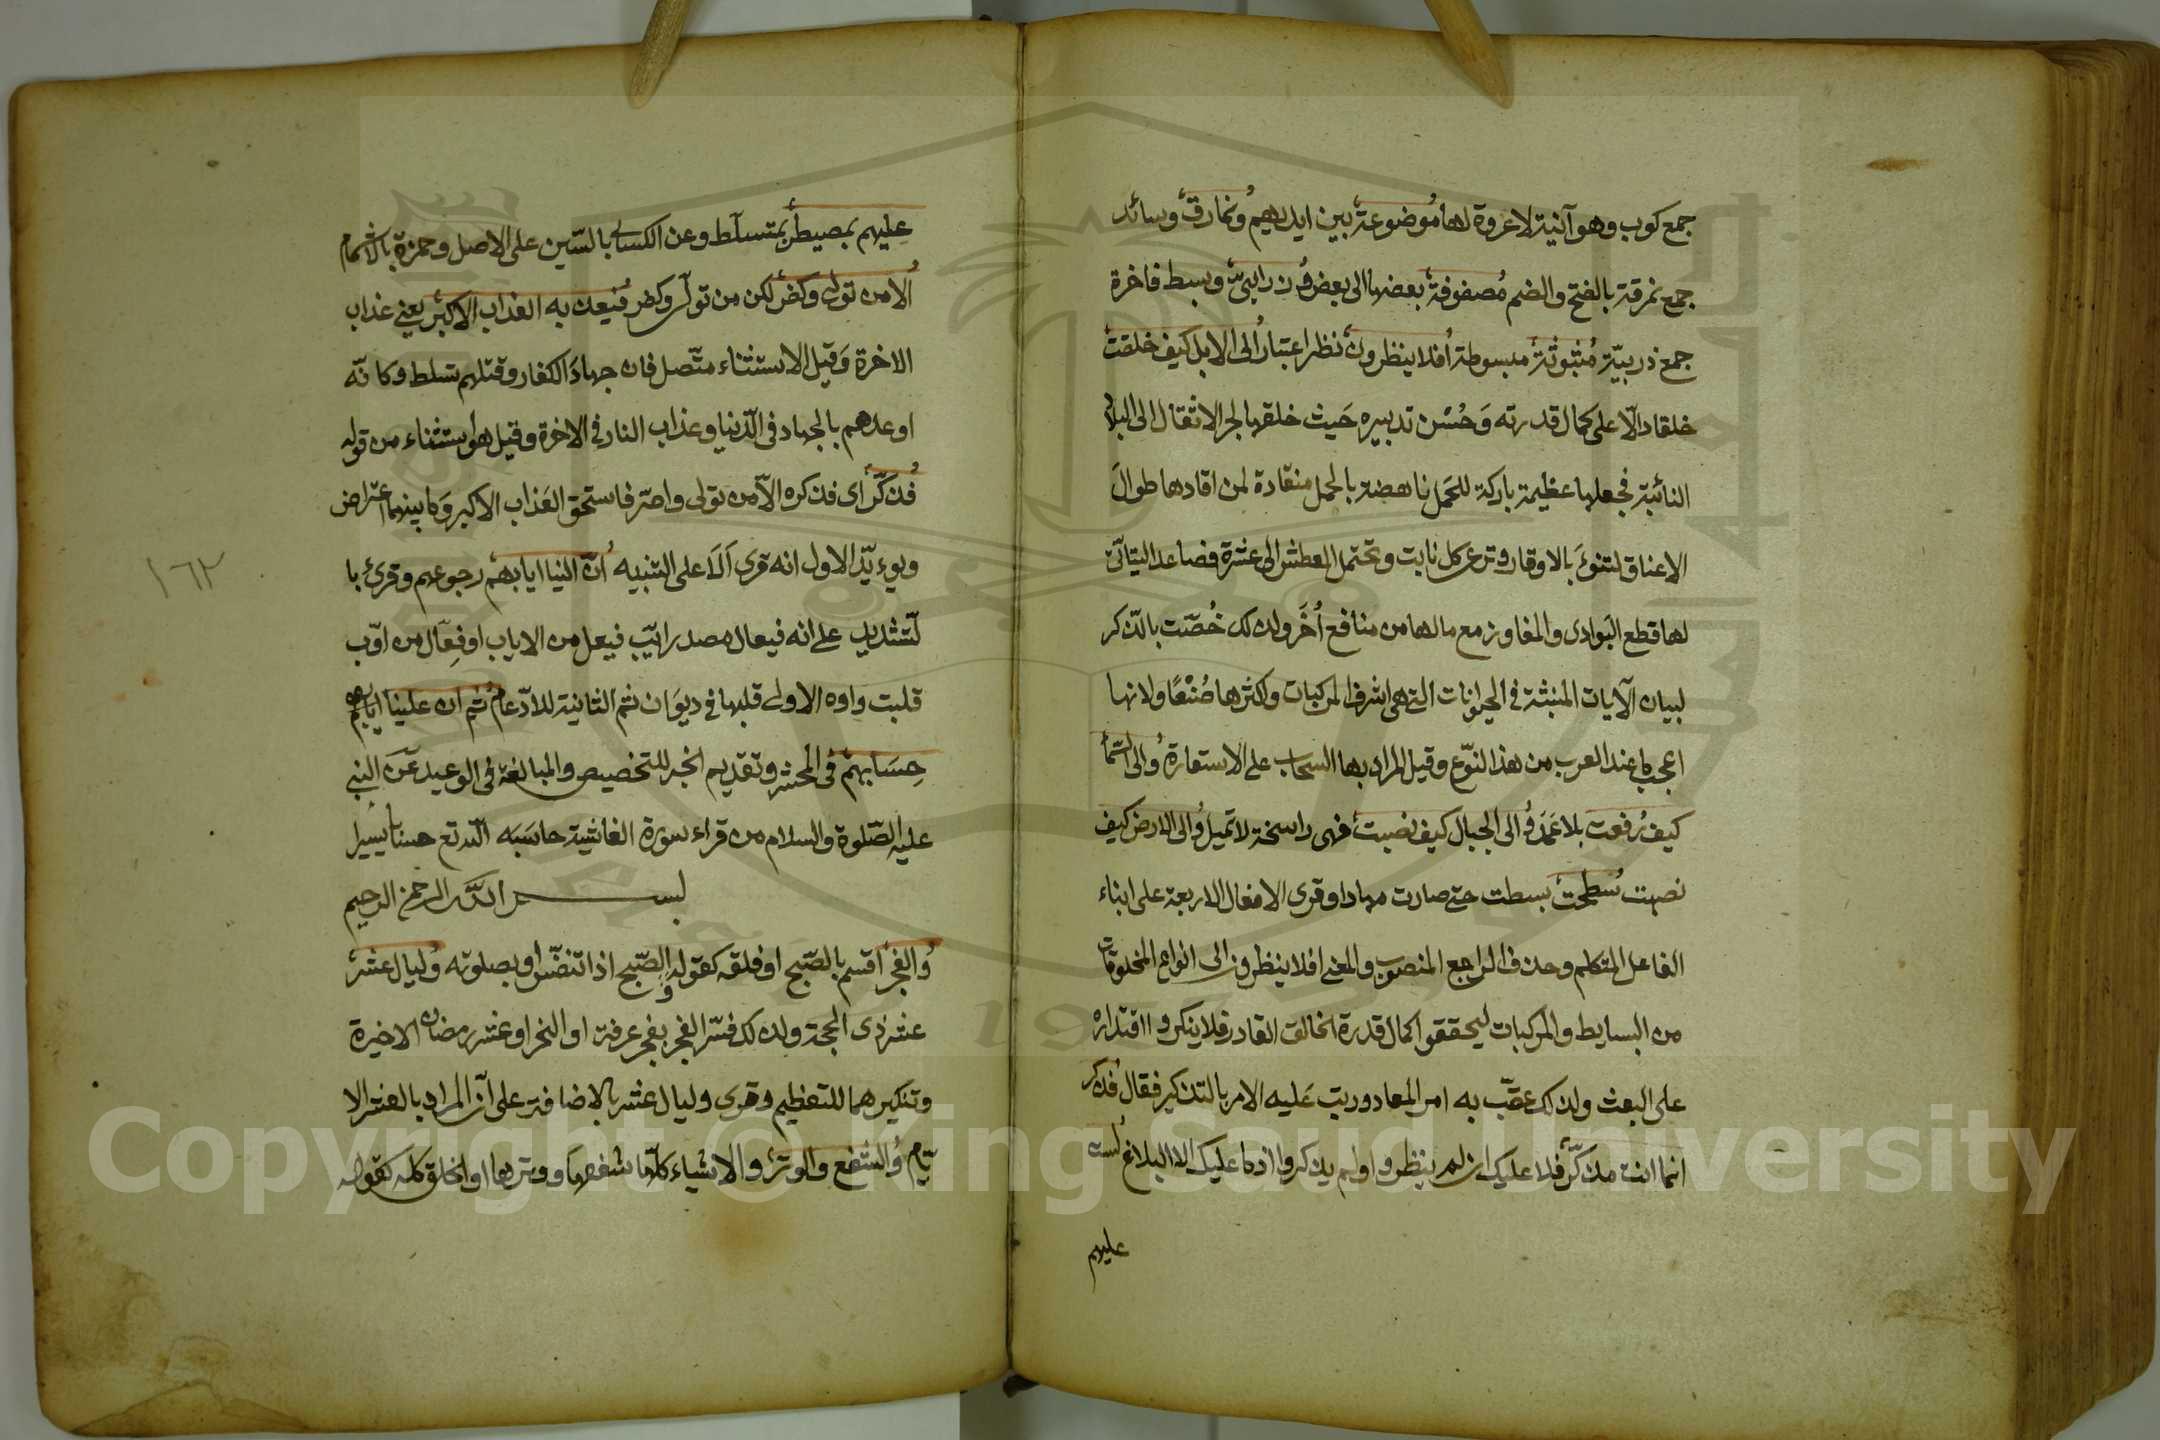 جمع كوب وهو آنية لاعروة لها موضوعة بين ايديهم ونمارق وسائد
جمع نمرقة بالفتح والضم مصفوفة بعضها الى بعض وزرابي وبسط فاخرة
جمع ذربيّة مبثوثة مبسوطة افلا ينظرون نظر اعتبار الى الابل كيف خلقت
خلقا دالّا على كمال قدرته وَحُسْن تدبيره حَيث خلقها لجر الاثقال الى البلاد
النائية فجعلها عظيمة باركة للحَمل ناهضة بالحمل منقادة لمن اقادها طوالَ
الاعناق لتنوَء بالاوقار وترعى كل نابت وتحتمل العطش الى عشرة فصاعدا ليتاتّى
لها قطع البَوادى والمفاوز مع مالها من منافع أُخَر ولذلك خُصّت بالذّكر
لبيان الآيات المنبثة في الحيوانات التي هي اشرف المركبات واكثرها صُنْعًا ولانها
اعجب ما عند العرب من هذا النوّع وقيل المراد بها السحاب على الاستعارة والى السّما
كيف رُفعت بلا عَمَد والى الجبال كيف نصبت فهى راسخة لا تميل والى الارض كيف
نصبت سُطحت بسطت حتى صارت مهادا وقرى الافعال الاربعة على ابناء
الفاعل المتكلم وحذف الراجع المنصوب والمعنى افلا ينظرون الى انواع المخلوقات
من البسايط والمركبات ليحققوا كمال قدرة الخالق القادر فلا ينكروا اقتداره
على البعث ولذلك عقّب به امر المعاد ورتب عَليه الامر بالتذكير فقال فذكر
انما انت مذكّر فلا عليك ان لم ينظروا ولم يذكروا اذ ما عليك الا البلاغ لست
عليهم
عليهم بمصيطر بمتسلّط وعن الكسائي بالسّين على الاصل وحمزة بالاشمام
الا من تولى وكفر لكن من تولّى وكفر فيعذبه العذاب الاكبر يعني عذاب
الاخرة وَقيل الاستثناء متّصل فان جهادَ الكفار وقتلهم تسلط وكانّه
اوعدهم بالجهاد في الدّنيا وعذاب النار في الاخرة وقيل هو استثناء من قوله
فذكّر اى فذكره الاّ من تولى واصرّ فاستحق العَذاب الاكبر وَما بينهما اعتراض
ويوءيّد الاول انه قرى اَلَا على التنبيه انّ الينا ايابهم رجوعهم وقرئ با
لتشديد على انه فيعال مصدر ايّب فيعل من الاياب او فِعّال من اوّب
قلبت واوه الاولى قلبها في ديوَان ثم الثانية للادّغام ثم ان علينا ايابهم
حِسَابهم في المحشر وتقديم الخبر للتخصيص والمبالغة في الوعيد عَن النبي
عليه الصّلوة والسلام من قراء سورة الغاشية حاسَبَه الله تع حسنابا يسيرا
بسم الله الرحمن الرحيم
والفجر اقسم بالصّبح او فلقه كقوله والصّبح اذا تنفّس او بصلوته وليال عشر
عشر ذى الحجة ولذلك فسّر الفجر بفجر عرفة او النحر او عشر رمضان الاخيرة
وتنكيرهما للتعظيم وقرى وليال عشر بالاضافة على أنّ المراد بالعشر الا
يّام والشفع والوتر والاشياء كلّها شفعها ووترها او الخلق كله كقوله
١٦٢
Copyright © King Saud University